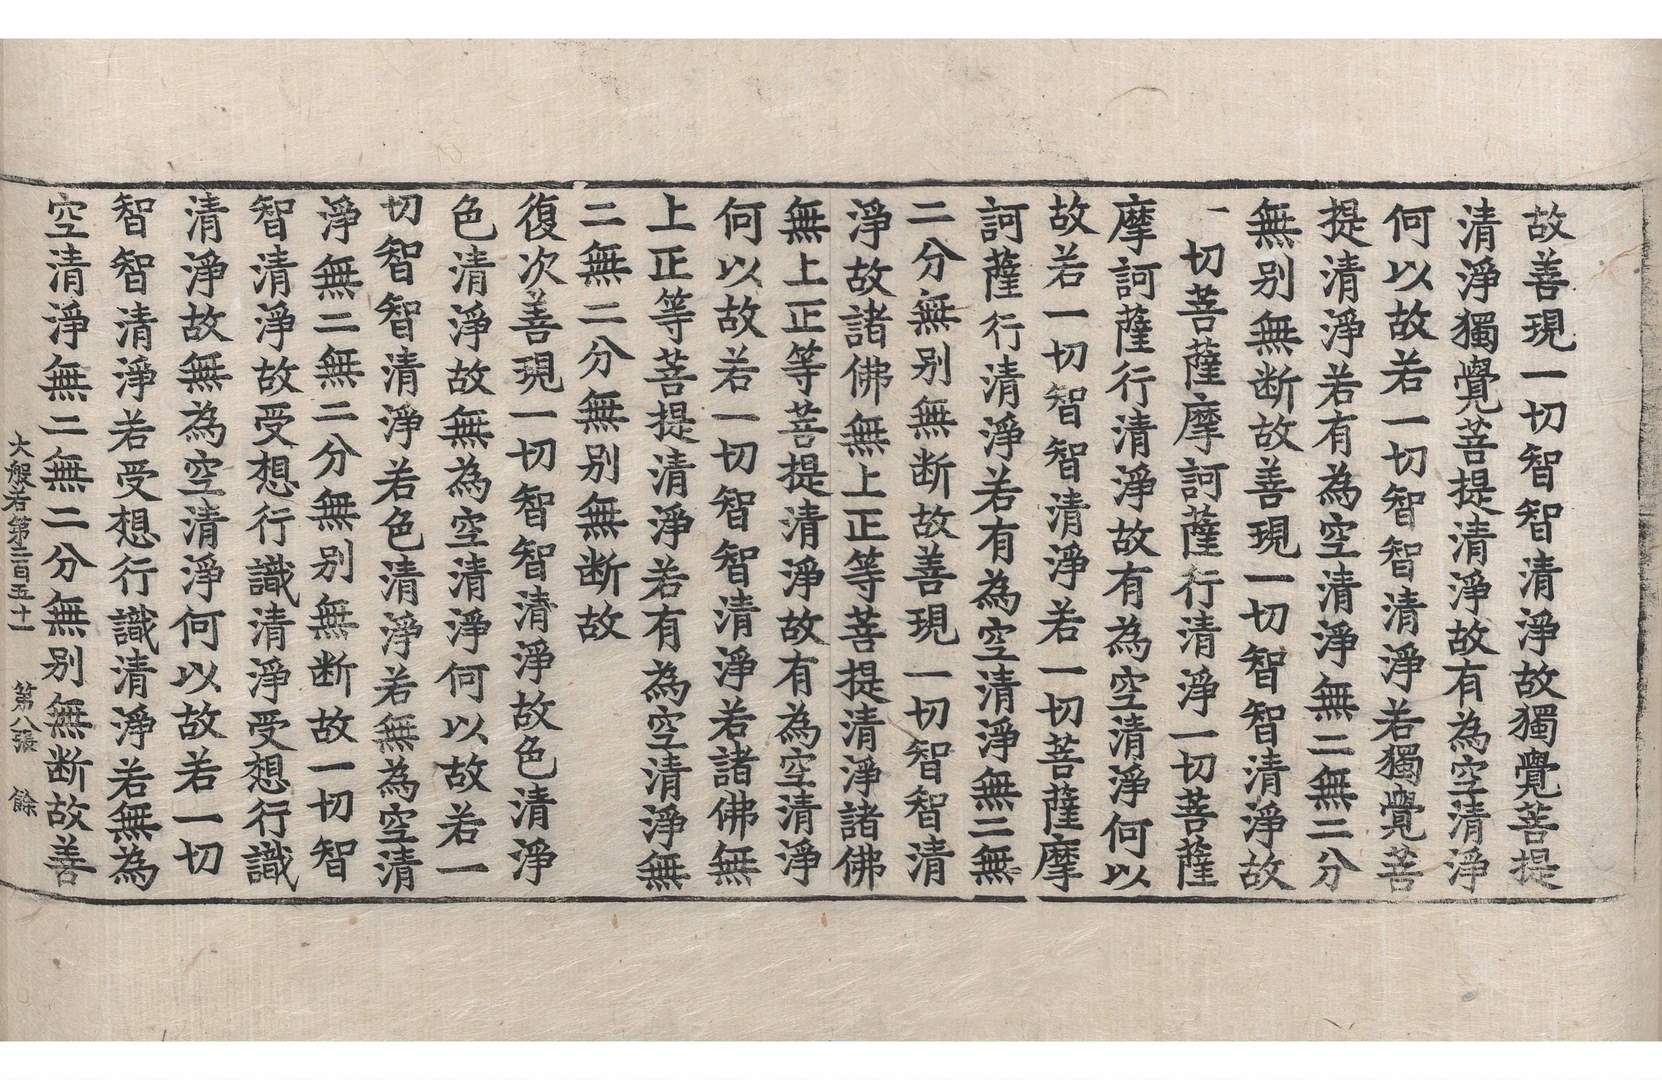 故善現一切智智清淨故獨覺菩提
清淨獨覺菩提清淨故有為空清淨
何以故若一切智智清淨若獨覺菩
提清淨若有為空清淨無二無二分
無别無断故善現一切智智清淨故
一切菩薩摩訶薩行清淨一切菩薩
摩訶薩行清淨故有為空清淨何以
故若一切智智清淨若一切菩薩摩
訶薩行清淨若有為空清淨無二無
二分無别無断故善現一切智智清
淨故諸佛無上正等菩提清淨諸佛
無上正等菩提清淨故有為空清淨
何以故若一切智智清淨若諸佛無
上正等菩提清淨若有為空清淨無
二無二分無别無断故
復次善現一切智智清淨故色清淨
色清淨故無為空清淨何以故若一
切智智清淨若色清淨若無為空清
淨無二無二分無别無断故一切智
智清淨故受想行識清淨受想行識
清淨故無為空清淨何以故若一切
智智清淨若受想行識清淨若無為
空清淨無二無二分無别無断故善
大般若第二百五十一 第八張 餘